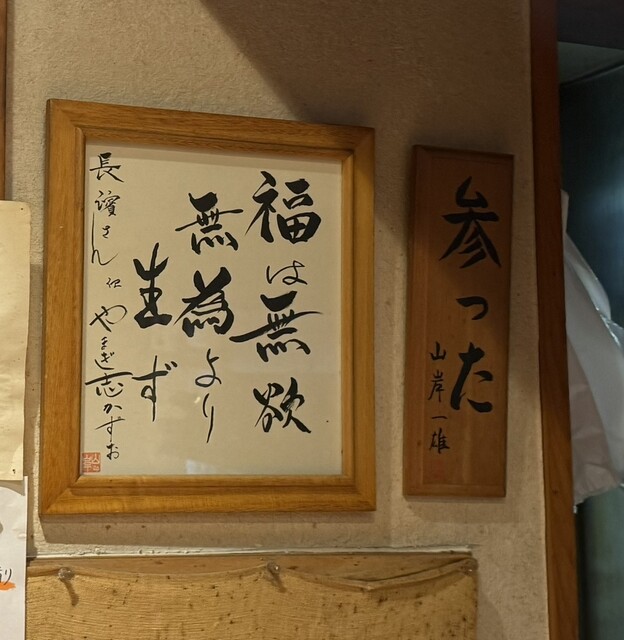 参った
山岸一雄
福は無欲
無為より
生ず
長濵さん江 やまぎ志かずお
り